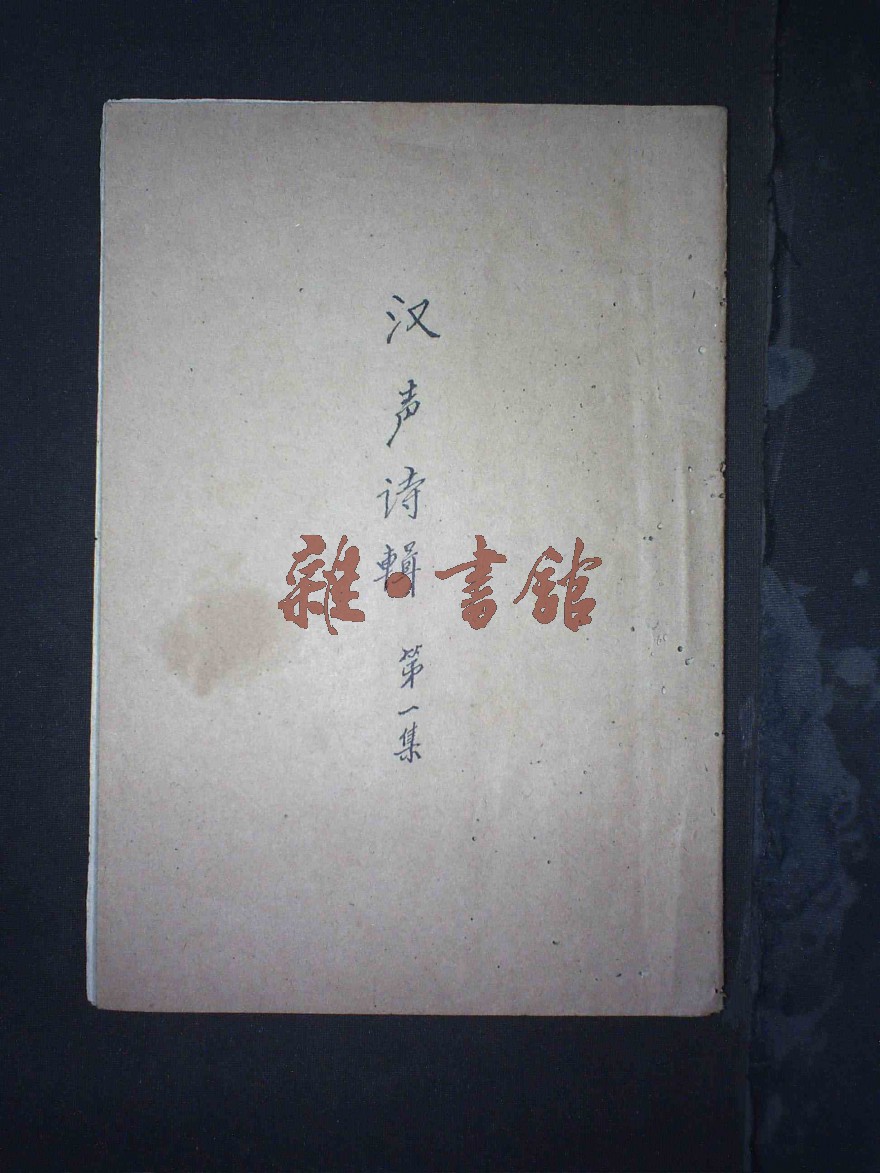 汉声诗輯 第一集
雜·書館